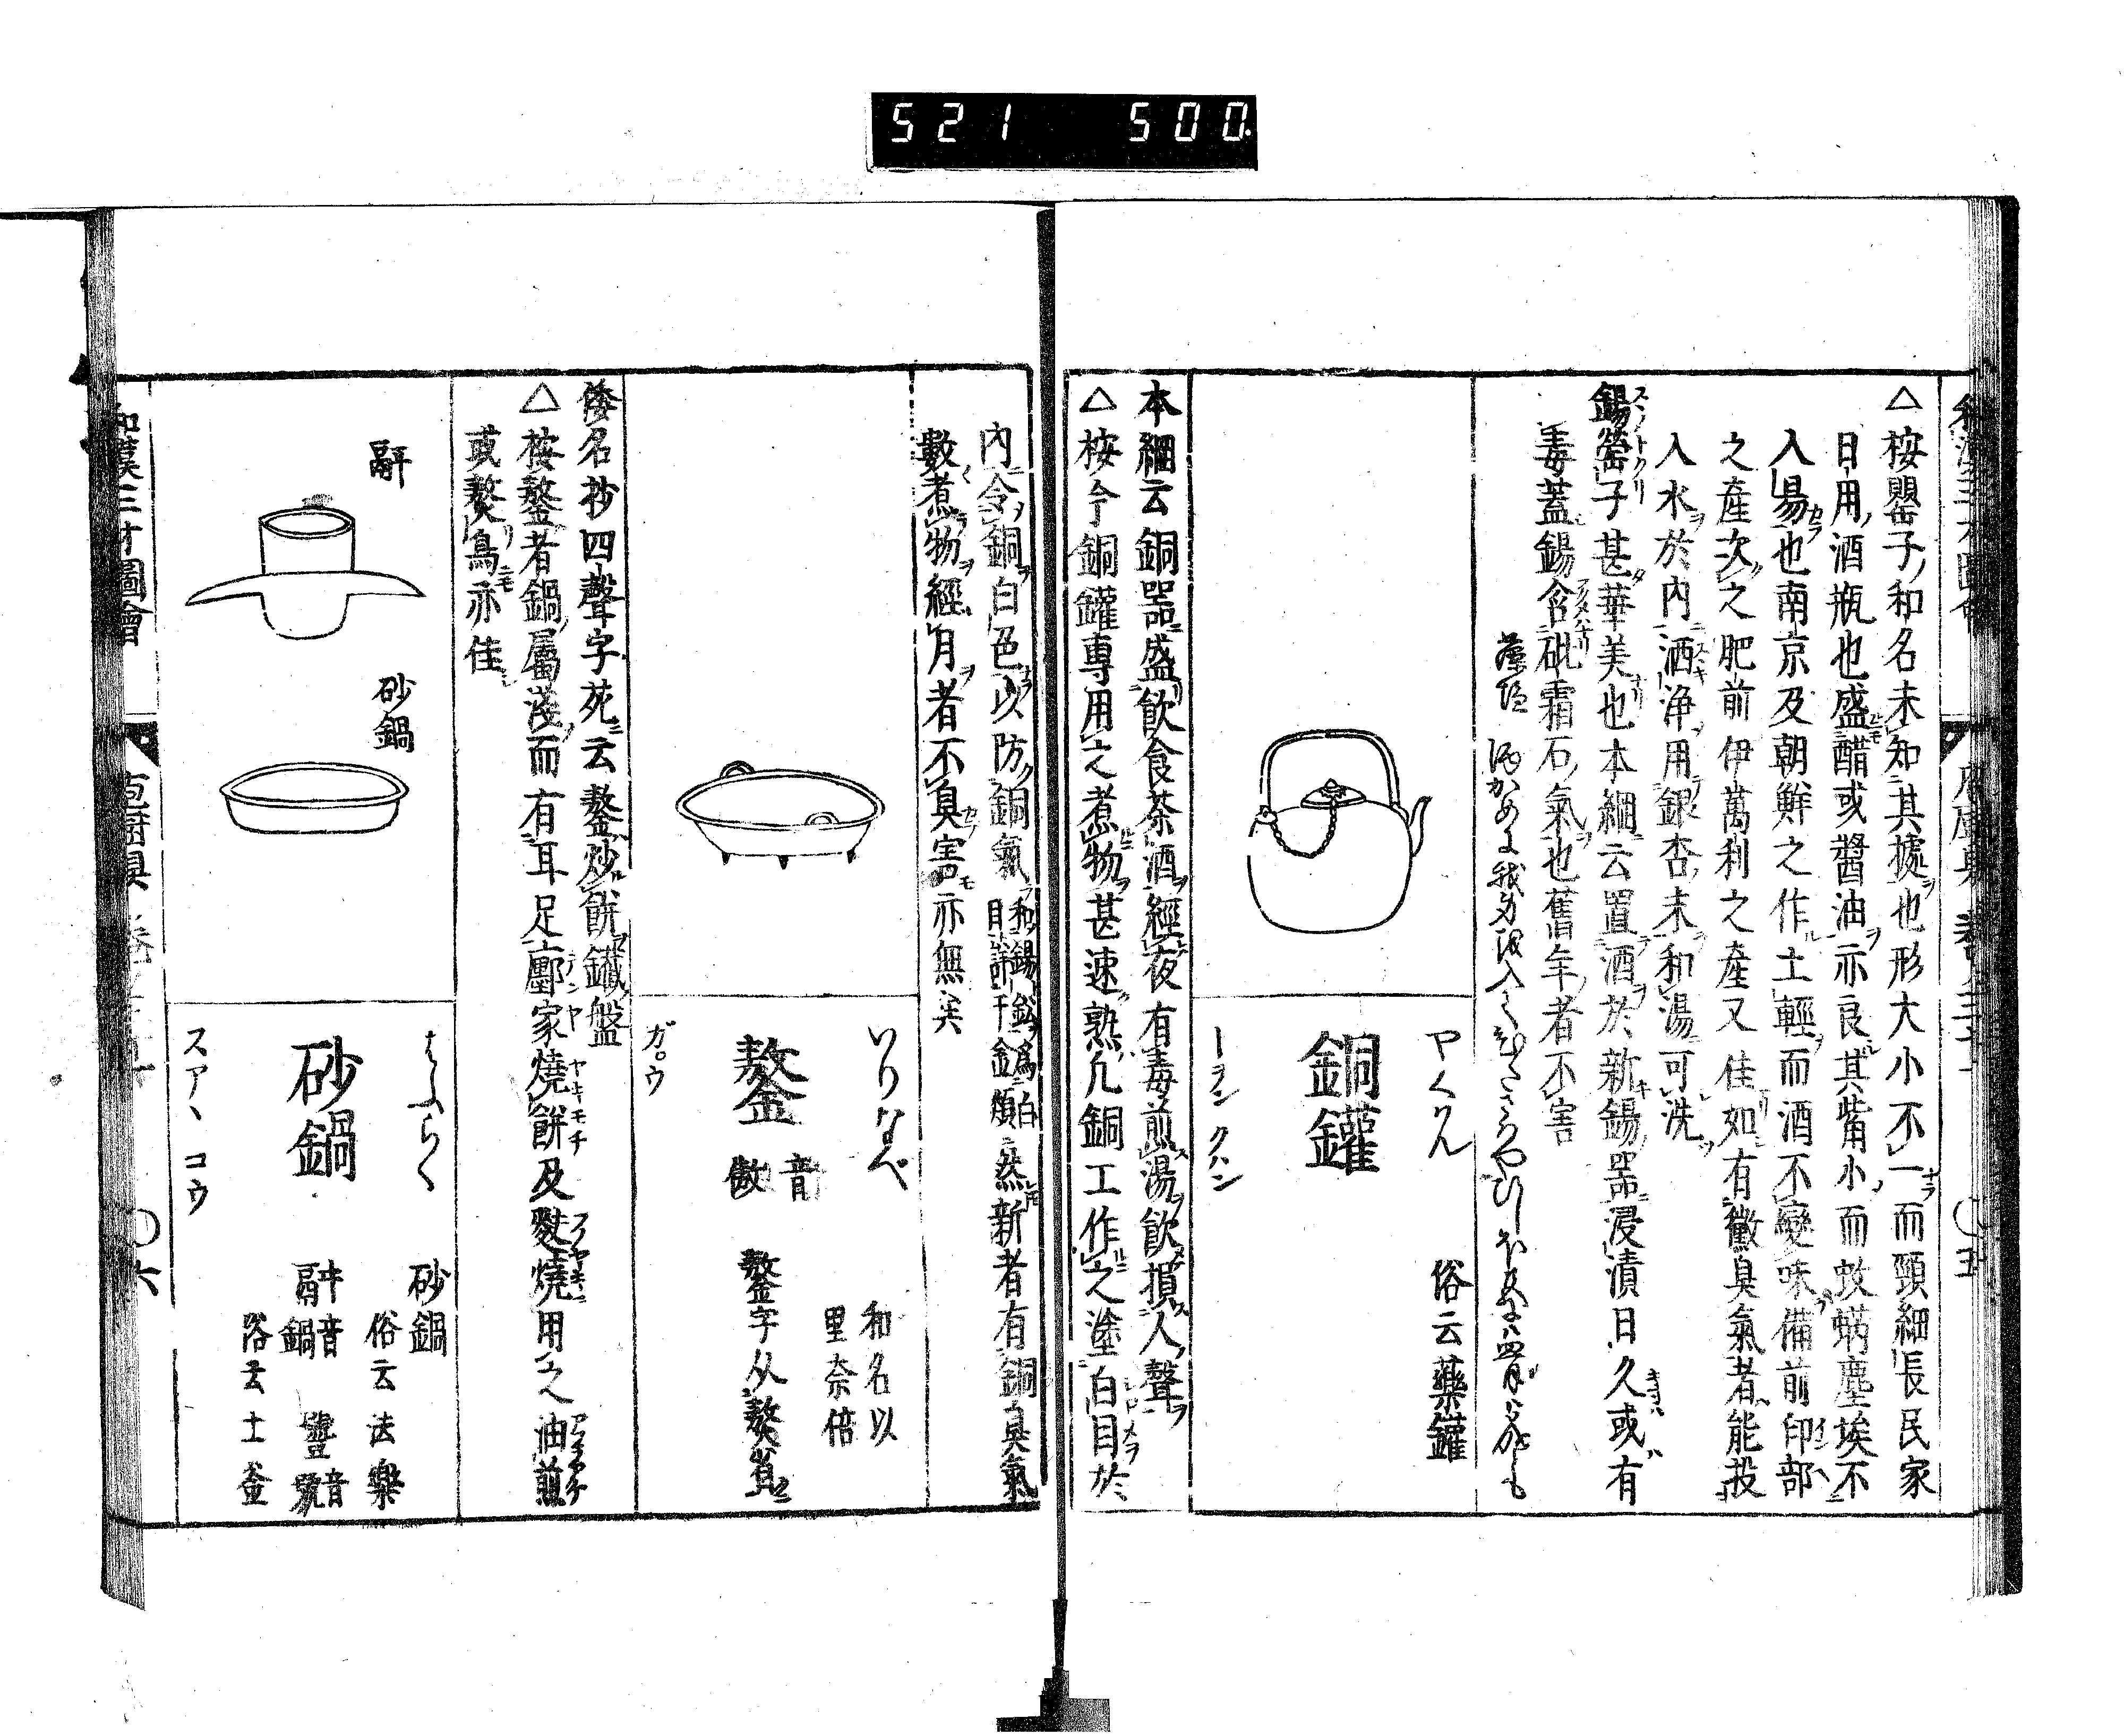 521 500
△按罌子和名未知其據也形大小不一而頸細長民家
日用酒瓶也盛醋或醬油亦良其觜小而蚊蝸塵埃不
入易也南京及朝鮮之作土輕而酒不變味備前印部
之產次之肥前伊萬利之產又佳如有黴臭氣者能投
入水於內洒浄用銀杏末和湯可洗
錫罃子甚華美也本綱云置酒於新錫器浸漬日久或有
毒蓋錫含砒霜石氣也舊年者不害
銅罐
やくわん
俗云藥罐
トラン クハン
本綱云銅器盛飲食茶酒經夜有毒煎湯飲損人聲
△按今銅罐専用之煮物甚速熟凢銅工作之塗白目於
內令銅白色以防銅氣 和錫鉛爲白目詳于鎔類 然新者有銅臭氣
數煮物經月者不臭害亦無矣
鏊 音 傲
いりなべ
和名以
里奈倍
鏊字从熬省
ガ゜ウ
倭名抄四聲字苑云鏊炒餅鐵盤
△按鏊者鍋屬淺而有耳足鄽家燒餅及麩燒用之油煎
或熬鳥亦佳
鬴
砂鍋
砂鍋
はうらく
砂鍋
俗云法樂
音
鍋
音
號
俗云土釜
スアヽ コウ
和漢三才圖會
庖厨具
〇六